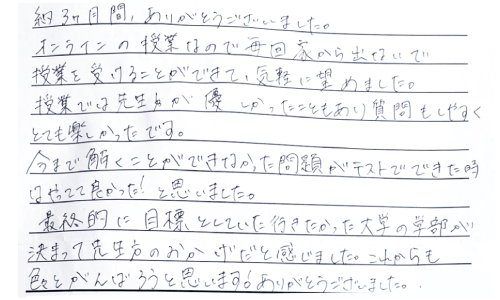 約3ヶ月間、ありがとうございました。
オンラインの授業なので毎回家から出ないで
授業を受けることができて、気軽に望めました。
授業では先生方が優しかったこともあり質問もしやすく
とても楽しかったです。
今まで解くことができなかった問題がテストでできた時
はやってて良かった！と思いました。
最終的に目標としていた行きたかった大学の学部が
決まって先生方のおかげだと感じました。これからも
色々とがんばろうと思います！ありがとうございました。